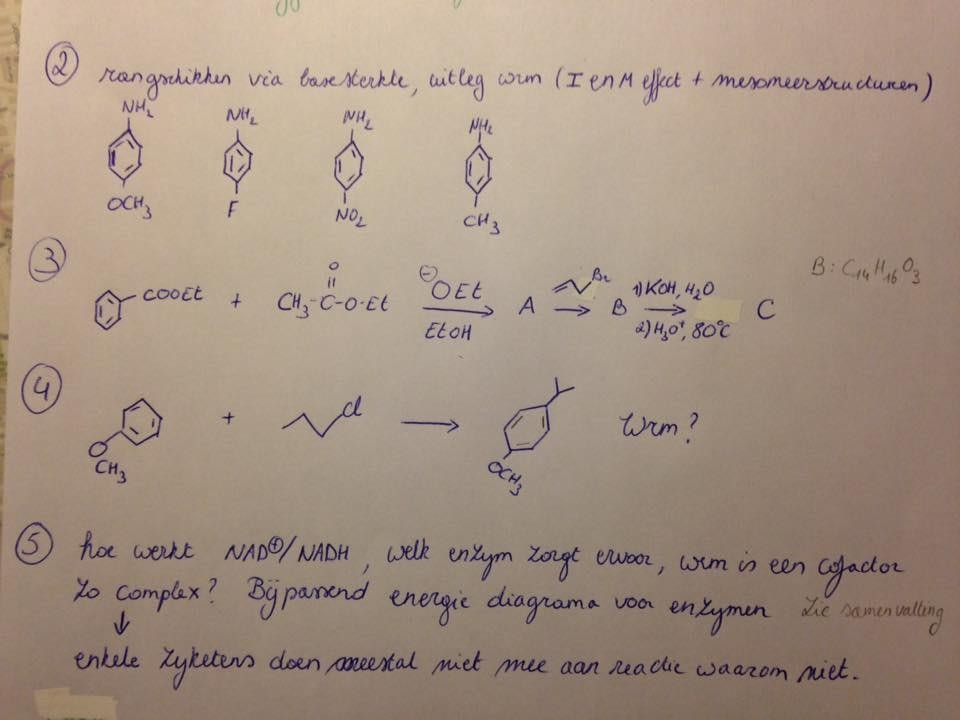 ② rangschikken via basesterkte, uitleg wrm (I en M effect + mesomeerstructuren)
NH2 NH2 NH2 NH2
OCH3 F NO2 CH3
③ COOEt + CH3-C-O-Et ⊖OEt EtOH A Br B 1) KOH, H2O 2) H3O+, 80°C C
O
B: C14H16O3
④ OCH3 + Cl OCH3 Wrm?
⑤ hoe werkt NAD⊕/NADH, welk enzym zorgt ervoor, wrm is een cofactor
zo complex? Bijpassend energie diagrama voor enzymen zie samenvatting
enkele zijketens doen meestal niet mee aan reactie waarom niet.